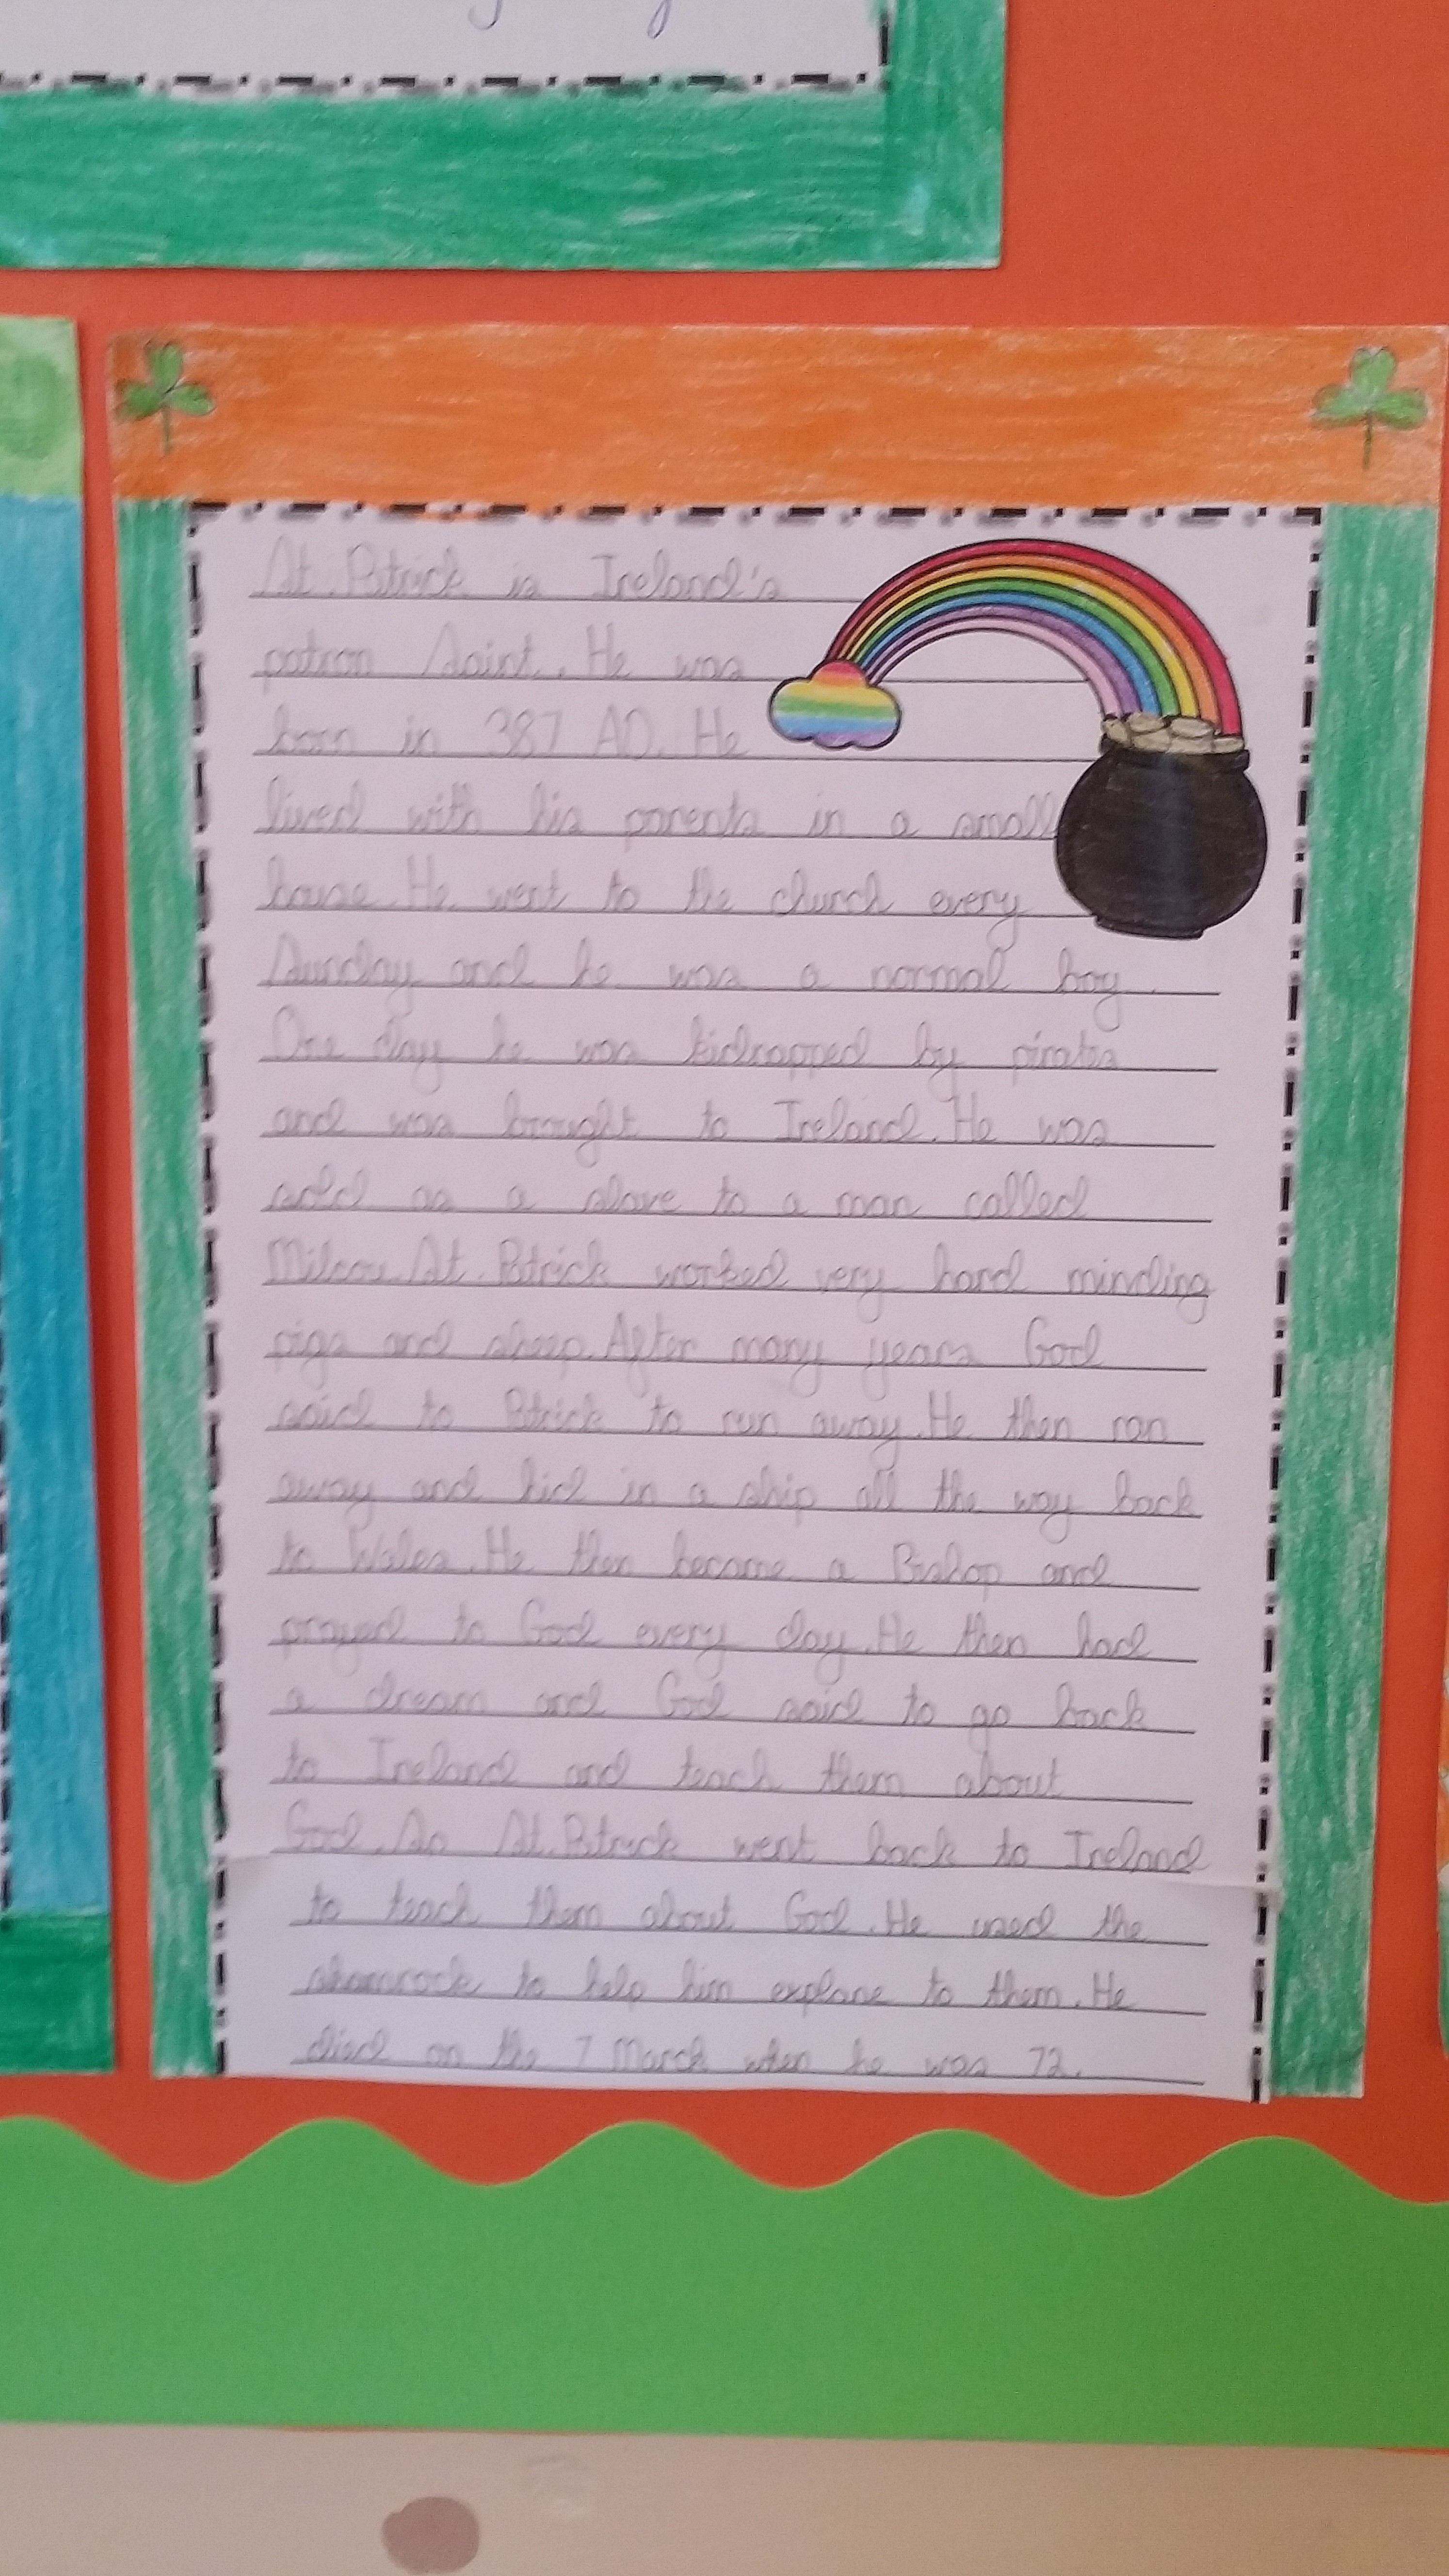 St. Patrick is Ireland's
patron Saint. He was
born in 387 AD. He
lived with his parents in a small
house. He went to the church every
Sunday and he was a normal boy.
One day he was kidnapped by pirates
and was brought to Ireland. He was
sold as a slave to a man called
St. Patrick worked very hard minding
pigs and sheep. After many years God
said to Patrick to run away. He then ran
away and hid in a ship all the way back
to Wales. He then became a Bishop and
prayed to God every day. He then had
a dream and God said to go back
to Ireland and teach them about
God. So St. Patrick went back to Ireland
to teach them about God. He used the
shamrock to help him explane to them. He
died on the 7 March when he was 72.